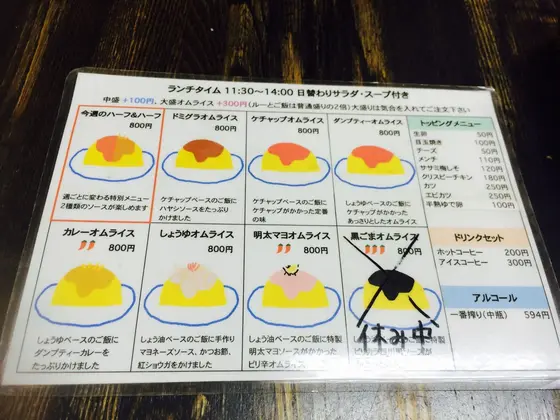 ランチタイム 11:30〜14:00 日替わりサラダ・スープ付き
中盛 +100円、大盛オムライス +300円(ルーとご飯は普通盛りの2倍)大盛りは気合を入れてご注文下さい
今週のハーフ&ハーフ
800円
週ごとに変わる特別メニュー
2種類のソースが楽しめます
ドミグラオムライス
800円
ケチャップベースのご飯に
ハヤシソースをたっぷり
かけました
ケチャップオムライス
800円
ケチャップベースのご飯に
ケチャップがかかった定番
の味
ダンプティーオムライス
800円
しょうゆベースのご飯に
ケチャップがかかった
あっさりとしたオムライス
カレーオムライス
800円
しょうゆベースのご飯に
ダンプティーカレーを
たっぷりかけました
しょうゆオムライス
800円
しょう油ベースのご飯に手作り
マヨネーズソース、かつお節、
紅ショウガをかけました
明太マヨオムライス
800円
しょう油ベースのご飯に特製
明太マヨソースがかかった
ピリ辛オムライス
黒ごまオムライス
800円
休み中
しょう油ベースのご飯に特製
トッピングメニュー
生卵 50円
目玉焼き 100円
チーズ 50円
メンチ 110円
ササミ梅しそ 120円
クリスピーチキン 180円
カツ 250円
エビカツ 250円
半熟ゆで卵 100円
ドリンクセット
ホットコーヒー 200円
アイスコーヒー 300円
アルコール
一番搾り(中瓶) 594円